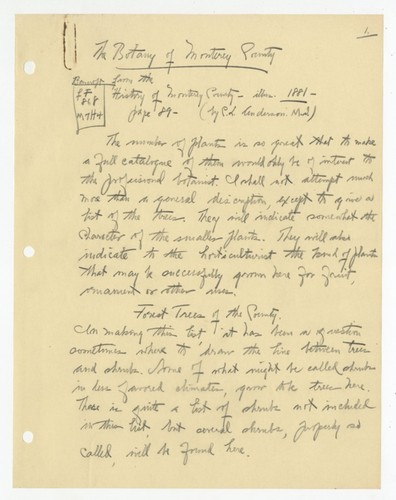 1.
The Botany of Monterey County
Bancroft from the
F F History of Monterey County - illus. 1881 -
868 page 89 - (by C.L. Anderson. M.D.)
M7H4
The number of plants is so great that to make
a full catalogue of them would only be of interest to
the professional botanist. I shall not attempt much
more than a general description, except to give a
list of the trees. They will indicate somewhat the
character of the smaller plants. They will also
indicate to the horticulturist the kind of plants
that may be successfully grown here for fruit,
ornament or other uses.
Forest Trees of the County.
In making this list, it has been a question
sometimes where to draw the line between trees
and shrubs. Some of what might be called shrubs
in less favored climates, grow to be trees here.
There is quite a list of shrubs not included
in this list, but several shrubs, properly so
called, will be found here.